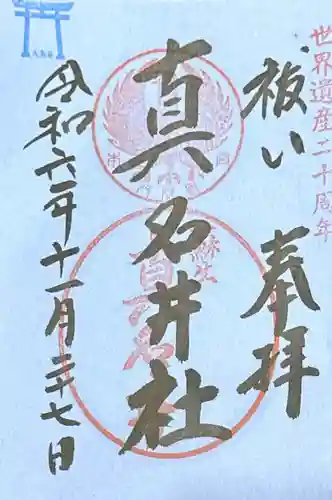 世界遺産二十周年
板い
奉拝
真名井社
令和六年十一月二十七日